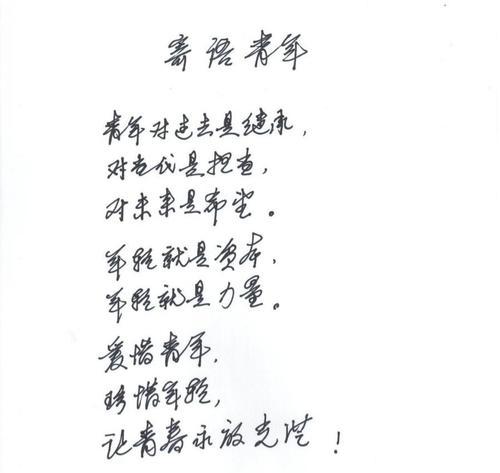 寄语青年
青年对过去是继承，
对当代是担当，
对未来是希望。
年轻就是资本，
年轻就是力量。
爱惜青年，
珍惜年轻，
让青春永放光芒！